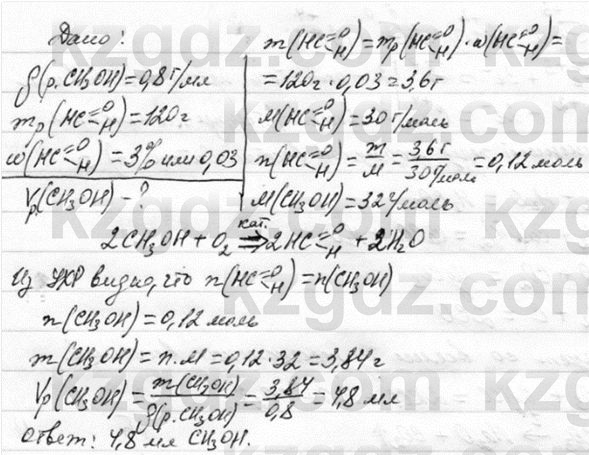 Дано:
ρ(р.CH₃OH)=0,8г/мл
mр(HC=O–H)=120г
ω(HC=O–H)=3% или 0,03
Vр(CH₃OH)-?
m(HC=O–H)=mр(HC=O–H)·ω(HC=O–H)=
=120г·0,03=3,6г
M(HC=O–H)=30г/моль
n(HC=O–H)=m/M=3,6г/30г/моль=0,12 моль
M(CH₃OH)=32г/моль
2CH₃OH+O₂ кат.⇒ 2HC=O–H+2H₂O
Из УХР видно, что n(HC=O–H)=n(CH₃OH)
n(CH₃OH)=0,12 моль
m(CH₃OH)=n·M=0,12·32=3,84г
Vр(CH₃OH)=m(CH₃OH)/ρ(р.CH₃OH)=3,84/0,8=4,8 мл
Ответ: 4,8 мл CH₃OH.
kzgdz.com